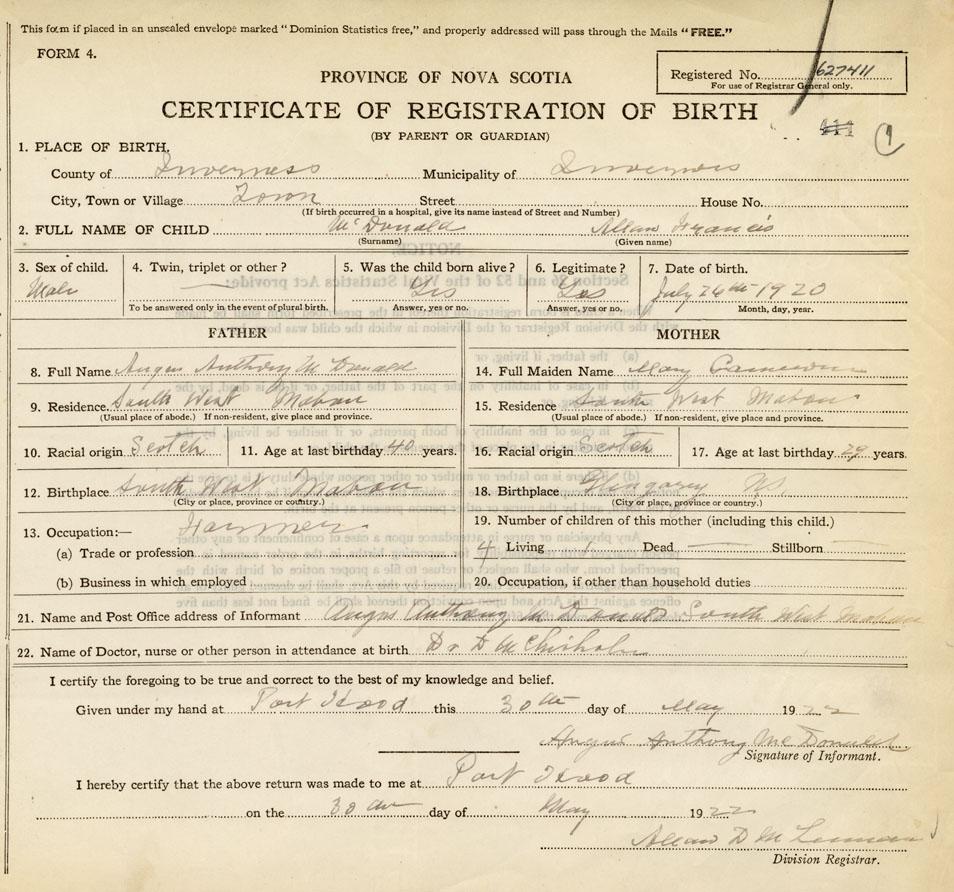 This form if placed in an unsealed envelope marked "Dominion Statistics free," and properly addressed will pass through the Mails "FREE."
FORM 4.
PROVINCE OF NOVA SCOTIA
Registered No. 627411
For use of Registrar General only.
CERTIFICATE OF REGISTRATION OF BIRTH
(BY PARENT OR GUARDIAN)
1. PLACE OF BIRTH.
County of Inverness Municipality of Inverness
City, Town or Village Town Street House No.
(If birth occurred in a hospital, give its name instead of Street and Number)
2. FULL NAME OF CHILD McDonald Allan Francis
(Surname) (Given name)
3. Sex of child. 4. Twin, triplet or other? 5. Was the child born alive? 6. Legitimate? 7. Date of birth.
Male — Yes Yes July 26th 1920
To be answered only in the event of plural birth. Answer, yes or no. Answer, yes or no. Month, day, year.
FATHER MOTHER
8. Full Name Angus Anthony McDonald 14. Full Maiden Name Mary Cameron
9. Residence South West Mabou 15. Residence South West Mabou
(Usual place of abode.) If non-resident, give place and province. (Usual place of abode.) If non-resident, give place and province.
10. Racial origin Scotch 11. Age at last birthday 40 years. 16. Racial origin Scotch 17. Age at last birthday 29 years.
12. Birthplace South West Mabou 18. Birthplace Glengarry NS
(City or place, province or country.) (City or place, province or country.)
13. Occupation:— Farmer 19. Number of children of this mother (including this child.)
(a) Trade or profession 4 Living Dead — Stillborn —
(b) Business in which employed 20. Occupation, if other than household duties
21. Name and Post Office address of Informant Angus Anthony McDonald South West Mabou
22. Name of Doctor, nurse or other person in attendance at birth Dr D McChisholm
I certify the foregoing to be true and correct to the best of my knowledge and belief.
Given under my hand at Port Hood this 30th day of May 1922
Angus Anthony McDonald
Signature of Informant.
I hereby certify that the above return was made to me at Port Hood
on the 30th day of May 1922
Allan D
Division Registrar.